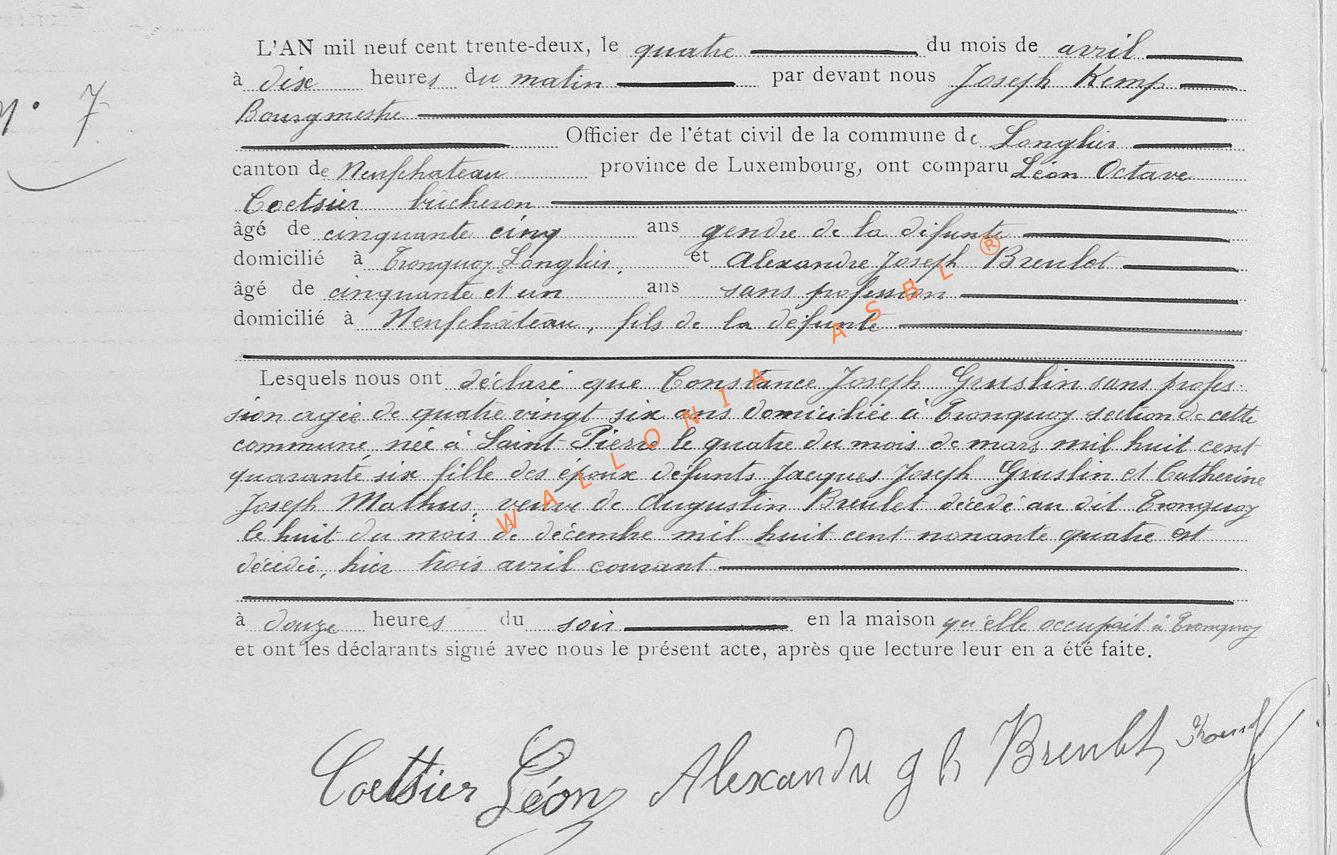 L'AN mil neuf cent trente-deux, le quatre du mois de avril
à dix heures du matin par devant nous Joseph Kemp
N° 7
Bourgmestre
Officier de l'état civil de la commune de Longlier
canton de Neufchateau province de Luxembourg, ont comparu Léon Octave
Coetsier bûcheron
âgé de cinquante cinq ans gendre de la défunte
domicilié à Tronquoy Longlier, et Alexandre Joseph Breulet
âgé de cinquante et un ans sans profession
domicilié à Neufchâteau, fils de la défunte
Lesquels nous ont déclaré que Constance Joseph Gruslin sans profes-
sion agée de quatre vingt six ans domiciliée à Tronquoy section de cette
commune, née à Saint-Pierre le quatre du mois de mars mil huit cent
quarante six fille des époux défunts Jacques Joseph Gruslin et Catherine
Joseph Mathus, veuve de Augustin Breulet décédé au dit Tronquoy
le huit du mois de décembre mil huit cent nonante quatre est
décédée, hier trois avril courant
à douze heures du soir en la maison qu'elle occupait à Tronquoy
et ont les déclarants signé avec nous le présent acte, après que lecture leur en a été faite.
Coetsier Léon Alexandre Breulet
WALLONIA ASBL ®